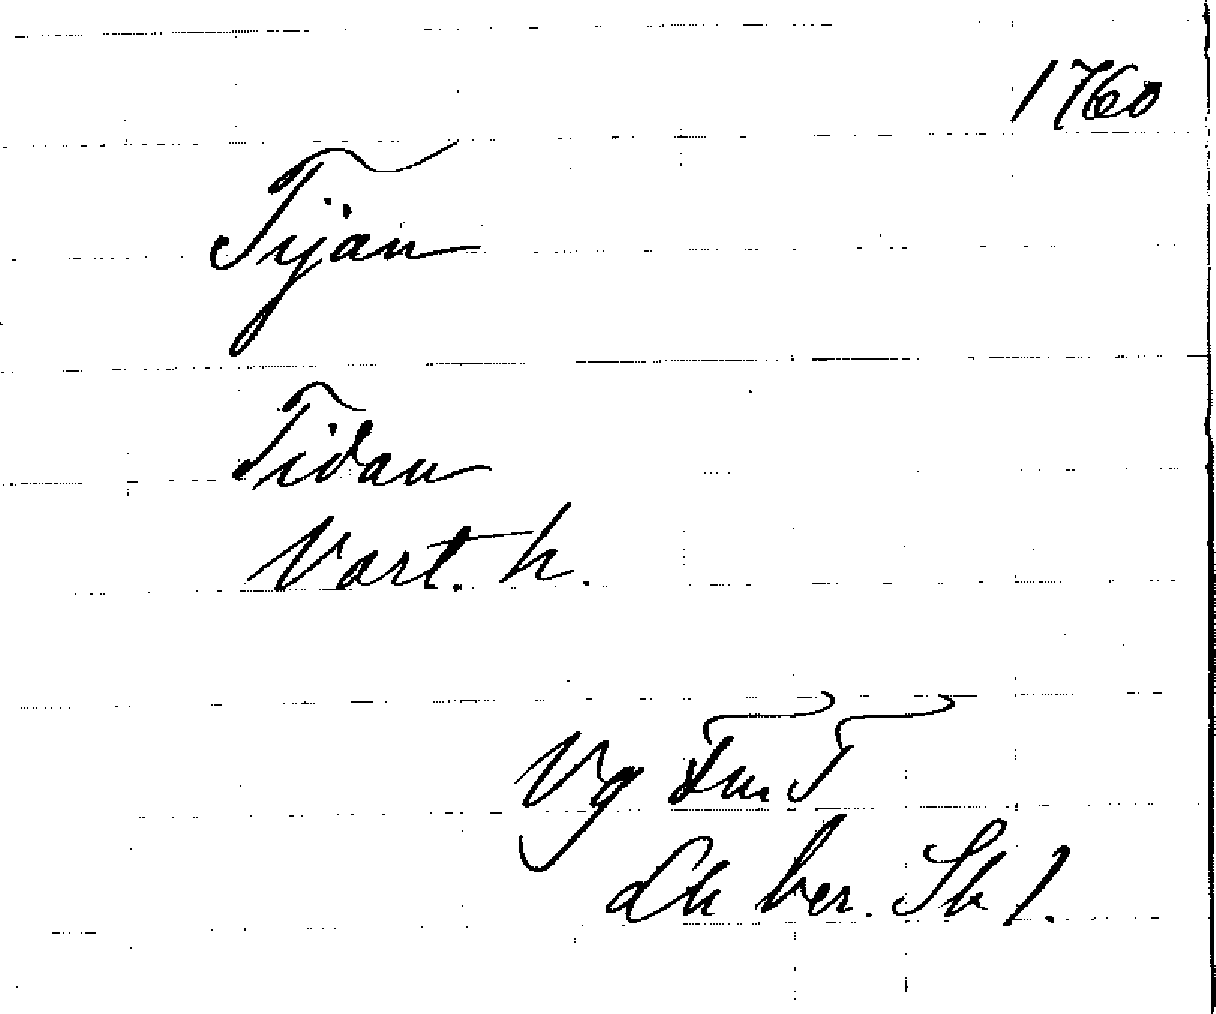 1760
Tijan
Tidan
Vart. h.
Vg Fm. T
Lh ber. Sk 1.